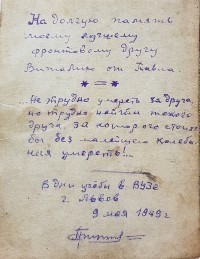 На долгую память
моему лучшему
фронтовому другу
Виталию от Павла.
...Не трудно умереть за друга,
но трудно найти такого
друга, за которого стоило
бы без малейшего колеба-
ния умереть!...
В дни учебы в ВУЗе
г. Львов
9 мая 1949 г.